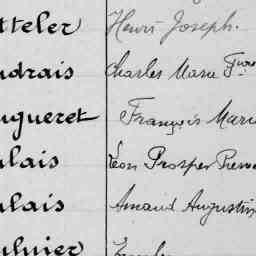 tteler Henri Joseph.
udrais Charles Marie
ugueret François Mari
alais Léon Prosper Pierre
alais Amand Augustin
ulnier